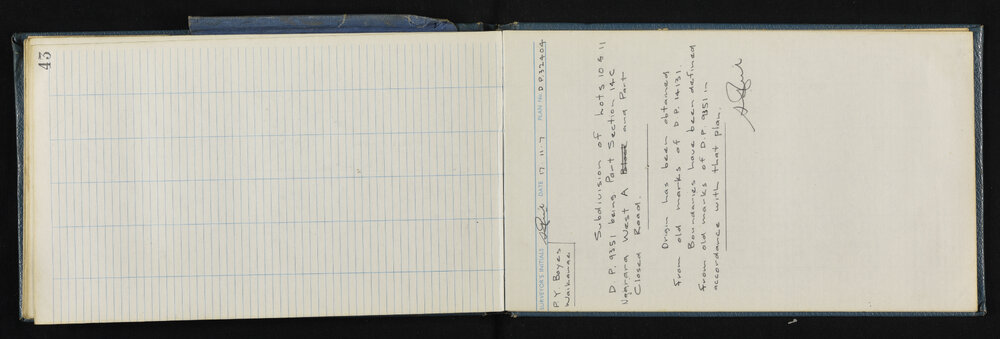 43
SURVEYOR'S INITIALS DATE 17 11 7 PLAN No. D.P. 32404
P.Y. Boyes
Waikanae.
Subdivision of Lots 10 & 11
D.P. 9351 being Part Section 14C
Ngarara West A Block and Part
Closed Road.
Origin has been obtained
from old marks of D.P. 14131.
Boundaries have been defined
from old marks of D.P. 9351 in
accordance with that plan.